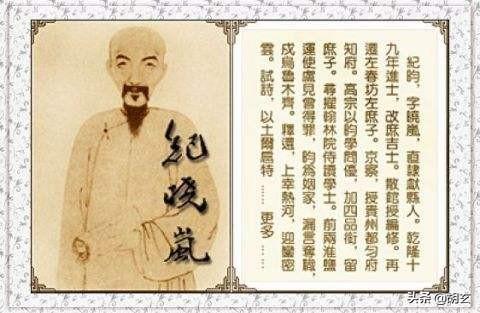 紀昀，字曉嵐，直隸獻縣人。乾隆十
九年進士，改庶吉士。散館授編修。再
遷左春坊左庶子。京察，授貴州都勻府
知府。高宗以昀學問優，加四品銜，留
庶子。尋擢翰林院侍讀學士。前兩淮鹽
運使盧見曾得罪，昀為姻家，漏言奪職，
戍烏魯木齊。釋還，上幸熱河，迎鑾密
雲。試詩，以土爾扈特 …… 更多 ……
紀曉嵐
头条 @胡玄